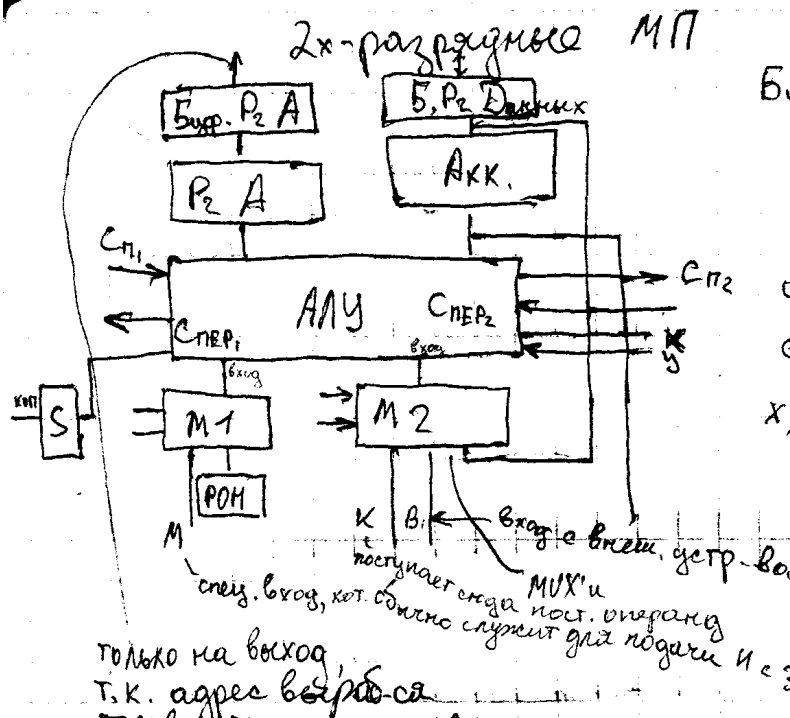 2х-разрядные МП
Буф. Рг А
Б. Рг Данных
Б.
Рг А
Акк.
Сп1
Сп2
АЛУ
Спер1
Спер2
X
У
вход
вход
коп
S
М1
М2
X,
РОН
М
К
В1
вход с внеш. устр-ва
поступает сюда пост. операнд
MUX'и
спец. вход, кот. обычно служит для подачи И с
только на выход,
т.к. адрес выраб-ся